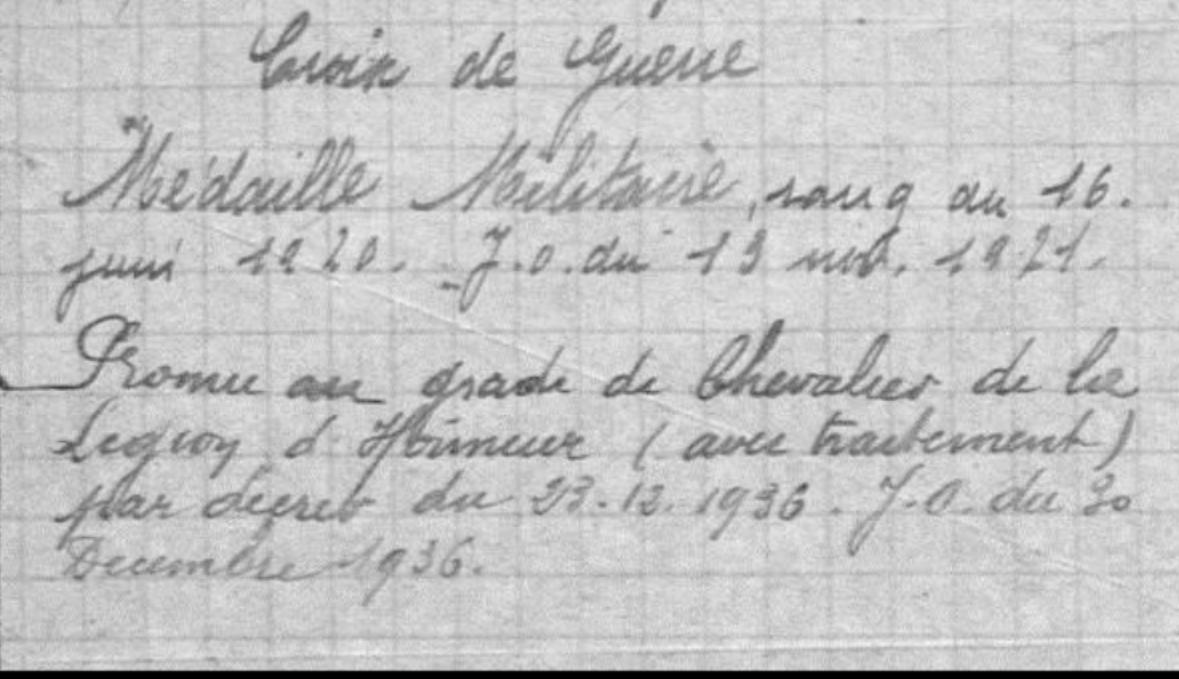 Croix de Guerre
Médaille Militaire, rang du 16.
juin 1920. J.O. du 13 nov. 1921.
Promu au grade de Chevalier de la
Légion d'Honneur (avec traitement)
par décret du 23.12.1936. J.O. du 30
Decembre 1936.